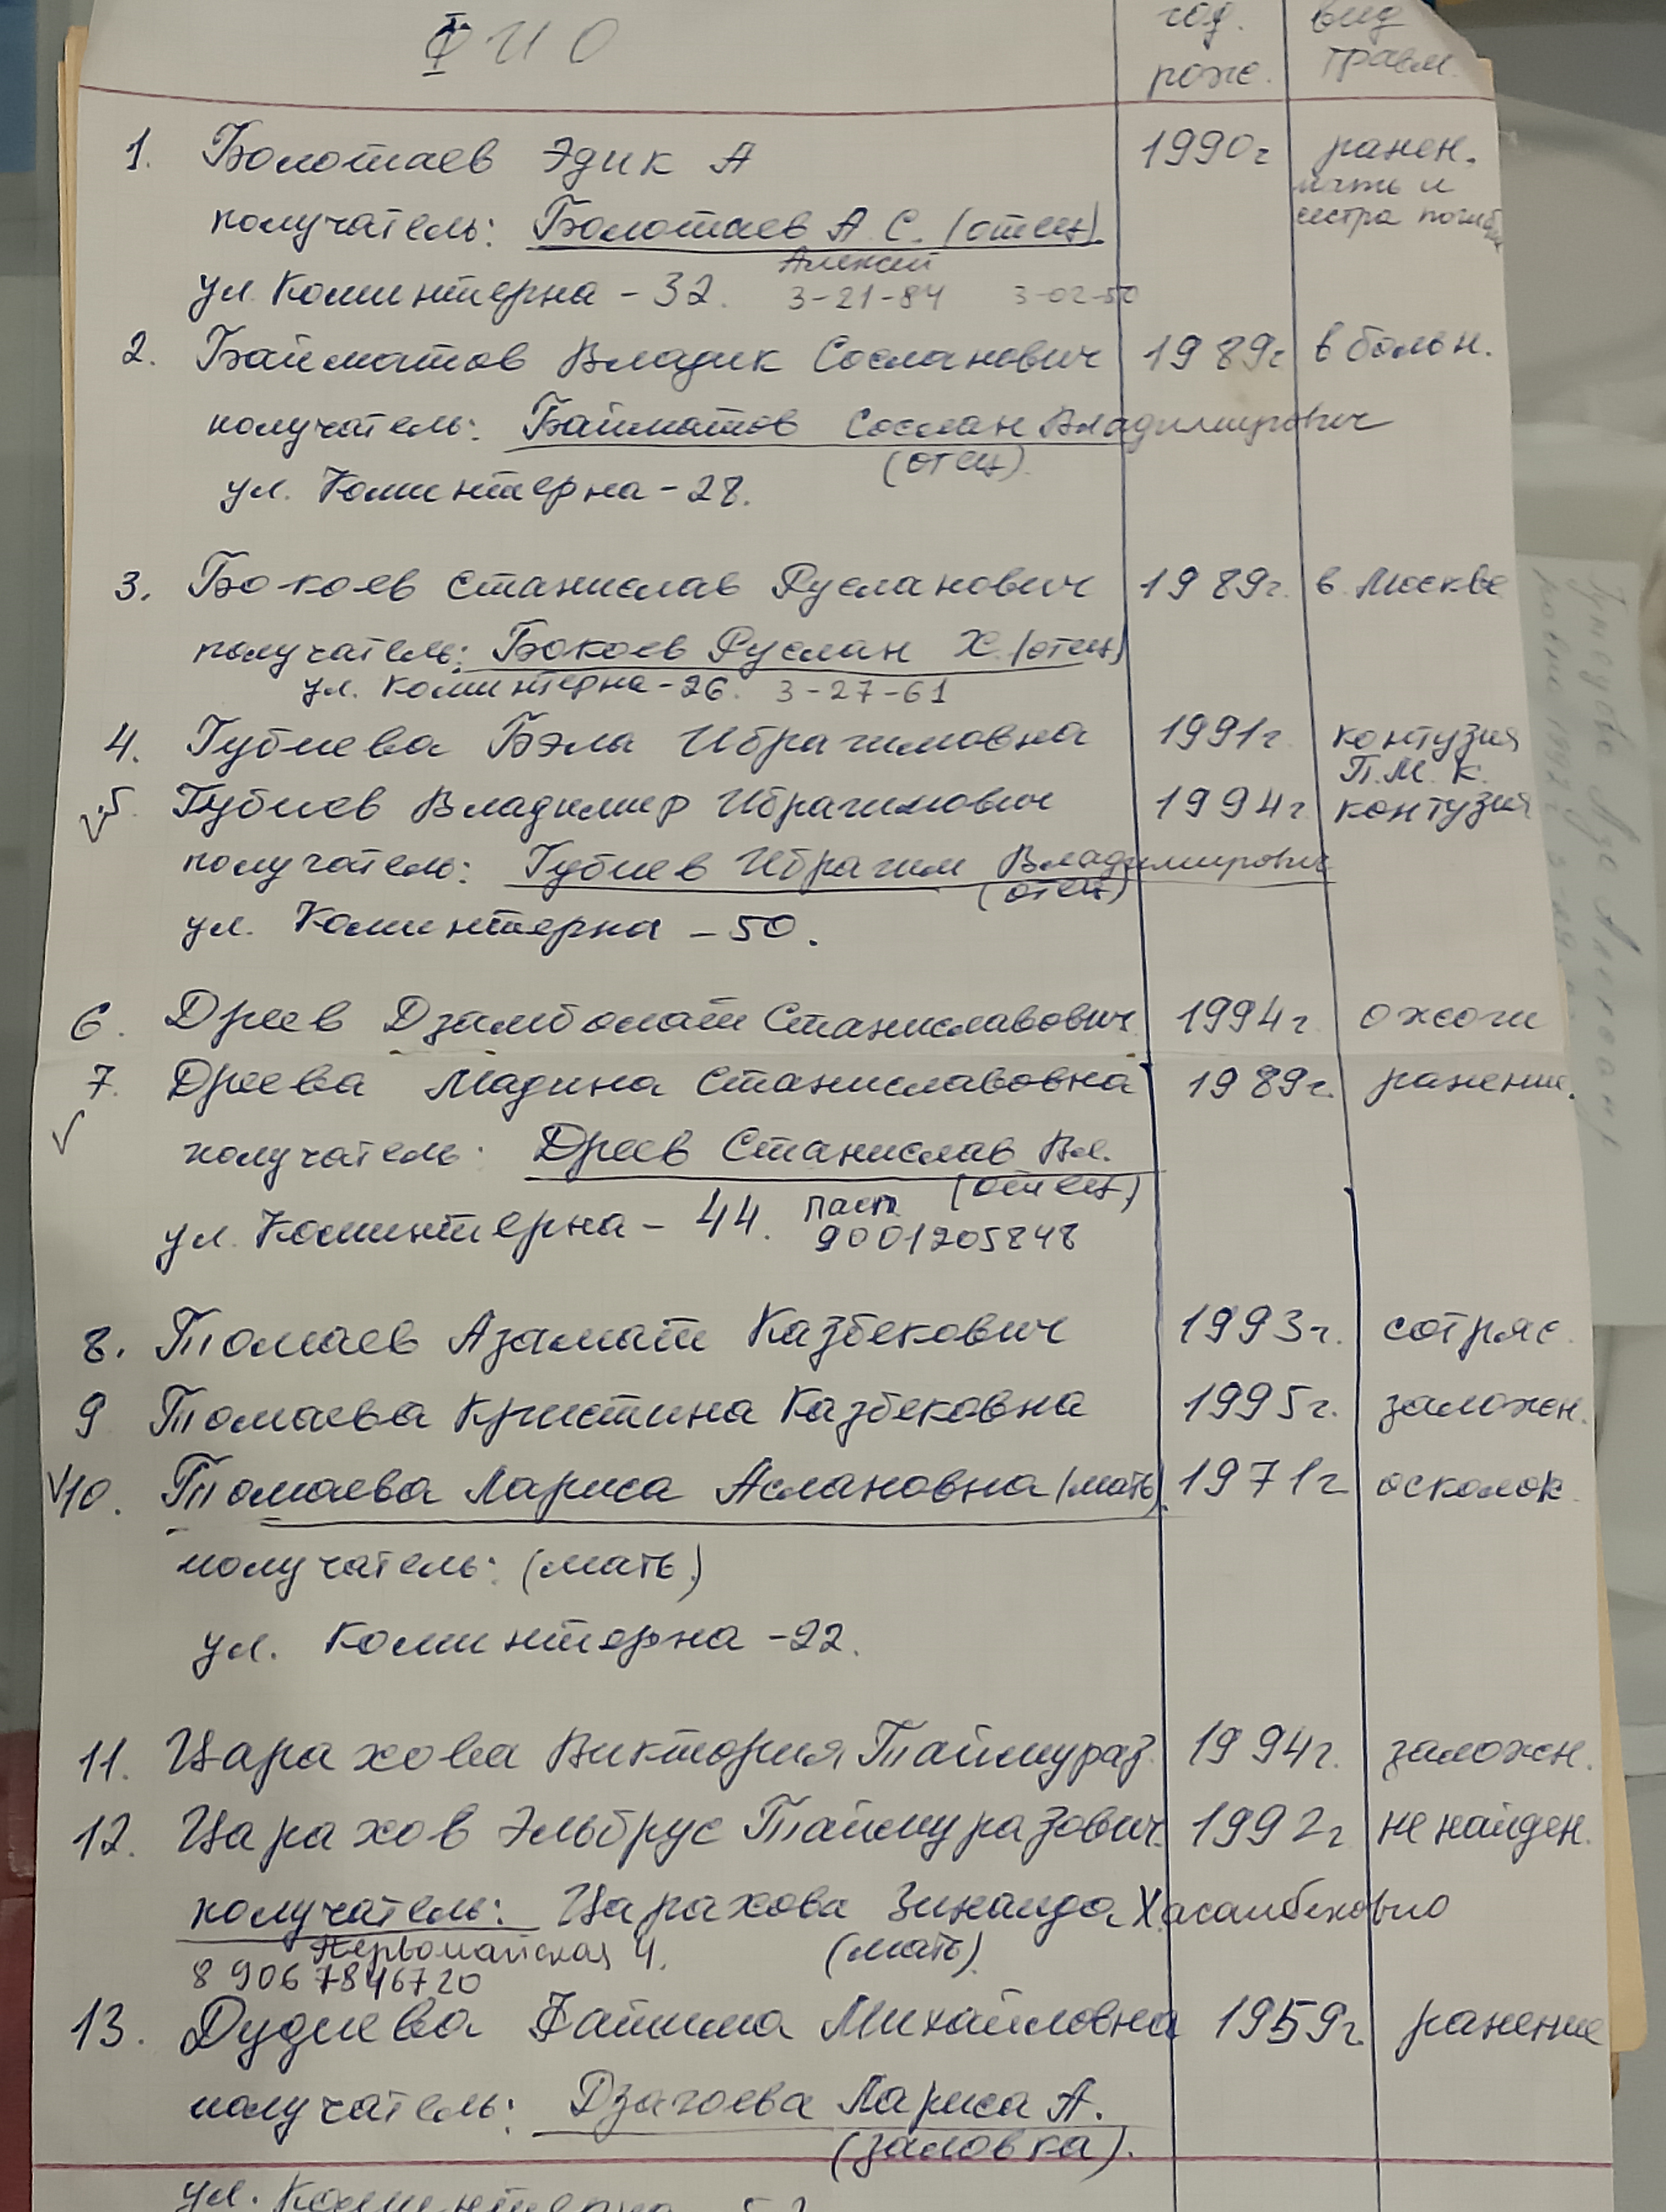 ФИО
год. рожд.
вид травм.
1. Болотаев Эдик А 1990г ранен.
мать и
сестра погиб
получатель: Болотаев А. С. (отец).
Алексей
ул. Коминтерна - 32. 3-21-84 3-02-50
2. Байматов Владик Сосланович 1989г в больн.
получатель: Байматов Сослан Владимирович
(отец).
ул. Коминтерна - 28.
3. Бокоев Станислав Русланович 1989г. в Москве
получатель: Бокоев Руслан Х. (отец)
ул. Коминтерна - 26. 3-27-61
4. Губиева Бэла Ибрагимовна 1991г. контузия
П.М.К.
5. Губиев Владимир Ибрагимович 1994г. контузия
получатель: Губиев Ибрагим Владимирович
(отец)
ул. Коминтерна - 50.
6. Дреев Дзамболат Станиславович 1994г. ожоги
7. Дреева Мадина Станиславовна 1989г. ранение.
получатель: Дреев Станислав Вл.
(отец)
ул. Коминтерна - 44. пасп
9001205848
8. Томаев Азамат Казбекович 1993г. сотряс.
9 Томаева Кристина Казбековна 1995г. заложн.
10. Томаева Лариса Аслановна (мать). 1971г осколок.
получатель: (мать.)
ул. Коминтерна - 22.
11. Царахова Виктория Таймураз. 1994г. заложн.
12. Царахов Эльбрус Таймуразович 1992г не найден.
получатель: Царахова Зинаида Хасанбековна
Первомайская 4. (мать).
8 906 7846720
13. Дудиева Фатима Михайловна 1959г. ранение
получатель: Дзагоева Лариса А.
(заловка).
ул. Коминтерна